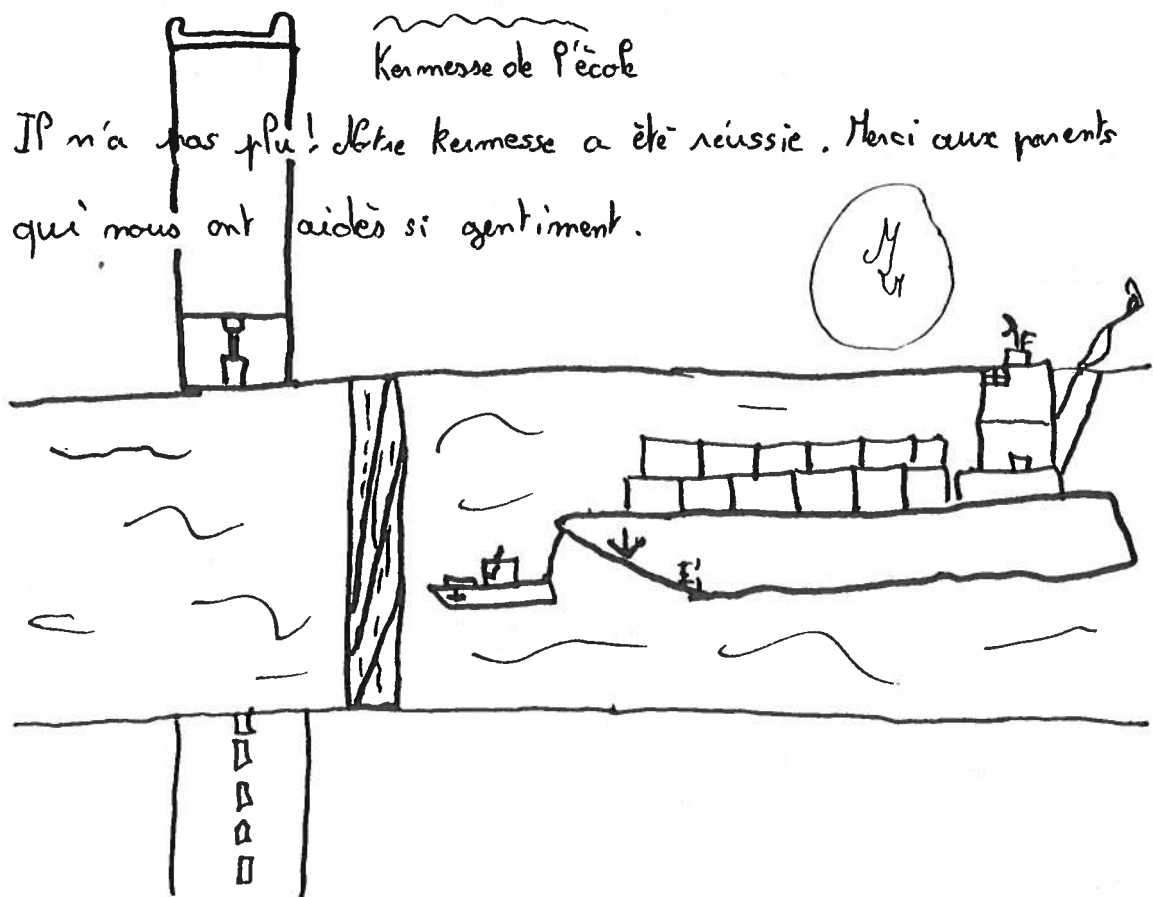 Kermesse de l'école
Il n'a pas plu! Notre kermesse a été réussie. Merci aux parents
qui nous ont aidés si gentiment.